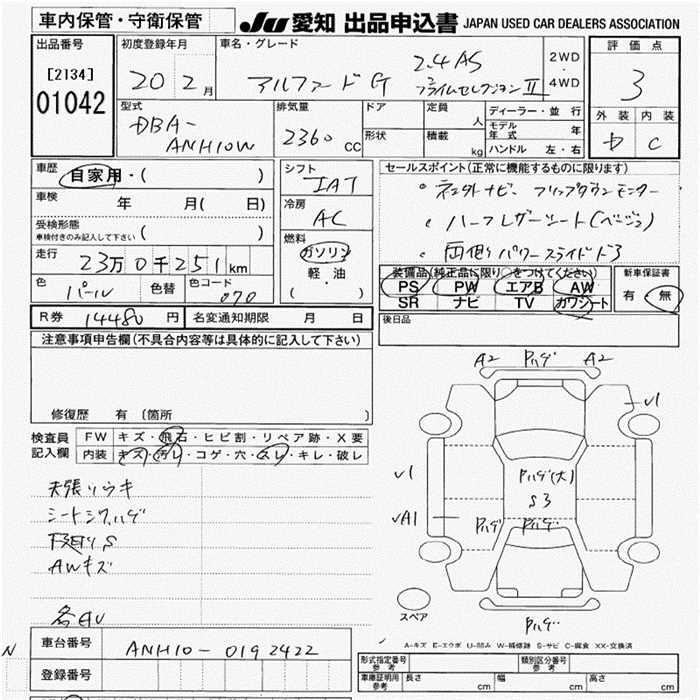 車内保管・守衛保管
JU 愛知 出品申込書 JAPAN USED CAR DEALERS ASSOCIATION
出品番号
[2134]
01042
初度登録年月
20 2月
車名・グレード
アルファードG 2.4 AS
プライムセレクションⅡ
2WD
・
4WD
評価点
3
外装 内装
D C
型式
DBA-
ANH10W
排気量
2360 CC
ドア
形状
定員 人
積載 kg
ディーラー・並行
モデル年式 年
ハンドル 左・右
車歴
自家用・( )
車検 年 月( 日)
受検形態
車検付きのみ記入して下さい ( )
走行
23万0千251km
色 パール 色替 色コード 070
シフト
IAT
冷房
AC
燃料
ガソリン
軽・油
( )
セールスポイント(正常に機能するものに限ります)
・社外ナビ フリップダウンモニター
・ハーフレザーシート(ベージュ)
・両側パワースライドドア
装備品(純正品に限り○をつけてください)
PS PW エアB AW
SR ナビ TV カワシート
新車保証書
有・無
R券 14480 円 名変通知期限 月 日
後日品
注意事項申告欄(不具合内容等は具体的に記入して下さい)
修復歴 有 (箇所 )
検査員
記入欄
FW キズ・飛石・ヒビ割・リペア跡・X要
内装 キズ・汚レ・コゲ・穴・スレ・キレ・破レ
天張りウキ
シートシワハゲ
下廻りS
AWキズ
各AU
A2 Pハゲ A2
√1
√1
Pハゲ(大)
S3
√A1 Pハゲ Pハゲ
Pハゲ
スペア
A-キズ E-エクボ U-凹み W-補修跡 S-サビ C-腐食 XX-交換済
N
車台番号 ANH10-0192422
登録番号
形式指定番号 参考
類別区分番号 参考
車庫証明用 参考 長さ cm 幅 cm 高さ cm